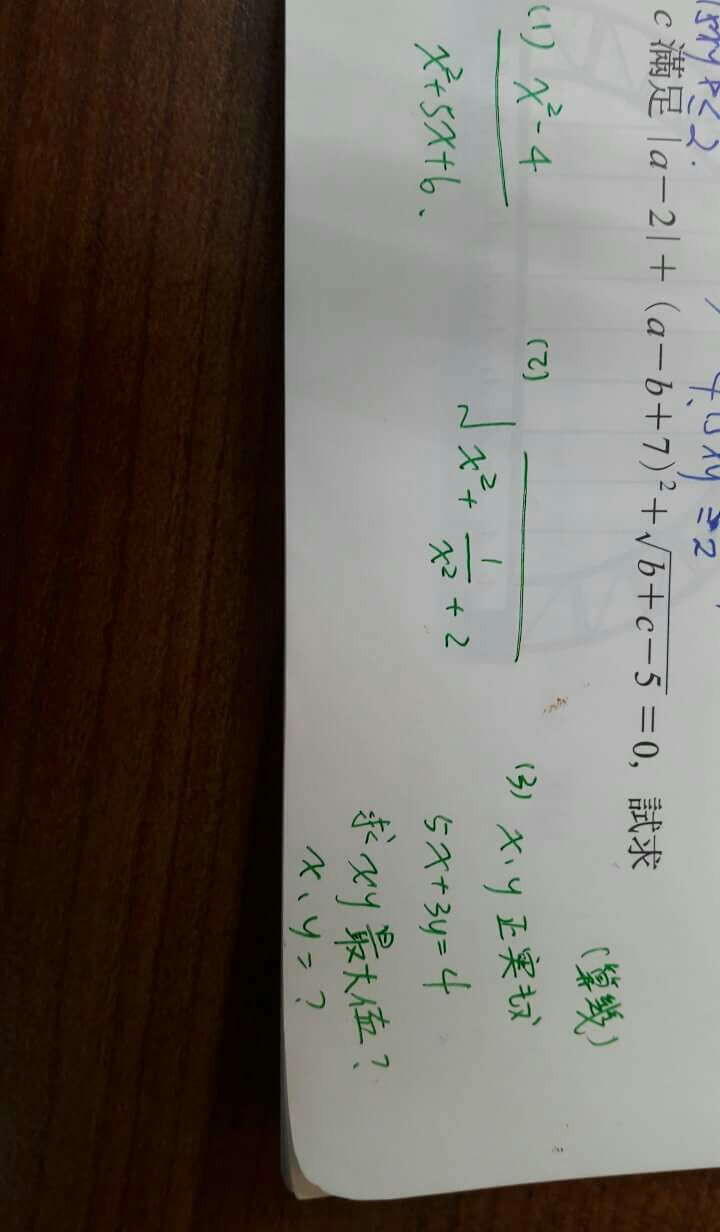 c 滿足 |a−2| + (a−b+7)² + √(b+c−5) = 0, 試求
(1) x²-4
x²+5x+6
(2) √(x² + 1/x² + 2)
(3) x、y 正實数
(算幾)
5x+3y=4
求 xy 最大值?
x、y=?